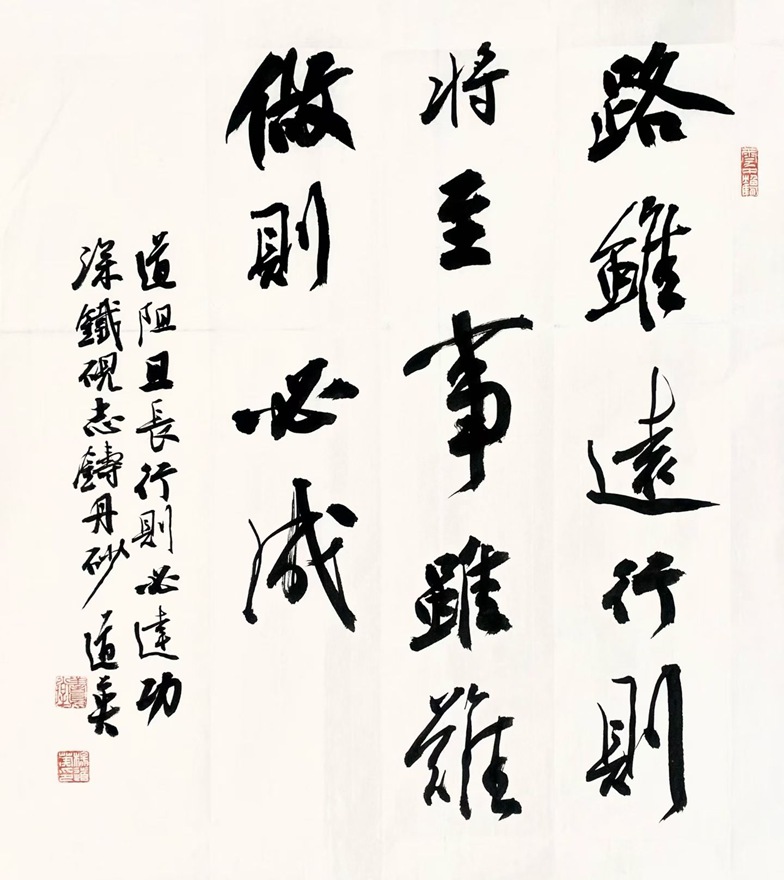 路雖遠行則
将至事雖難
做則必成
道阻且長行則必達功
深鐵硯志鑄丹砂 道英